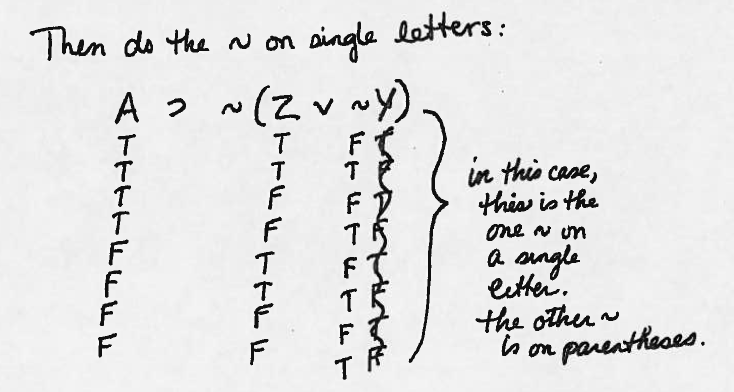 Then do the ~ on single letters:
A ⊃ ~(Z ∨ ~Y)
T T F T
T T T F
T F F T
T F T F
F T F T
F T T F
F F F T
F F T F
in this case,
this is the
one ~ on
a single
letter.
the other ~
is on parentheses.